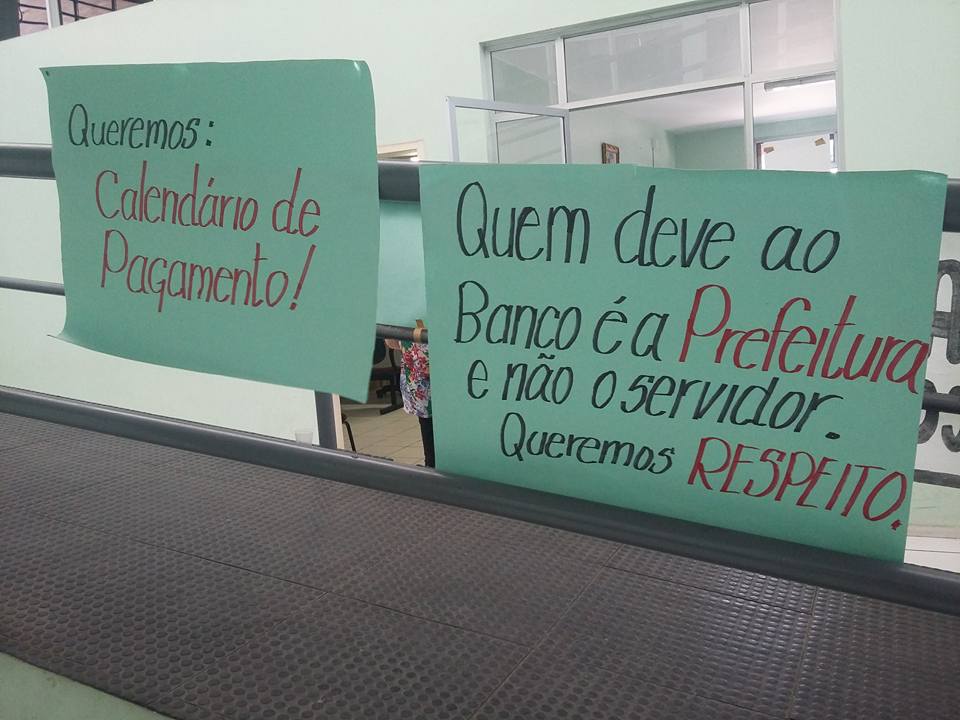 Queremos:
Calendário de
Pagamento!
Quem deve ao
Banco é a Prefeitura
e não o servidor.
Queremos RESPEITO.